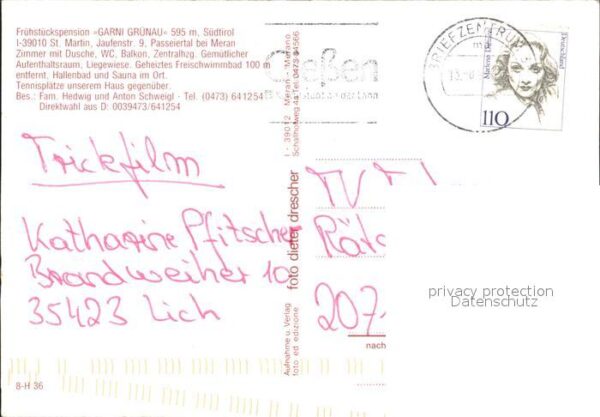 Frühstückspension »GARNI GRÜNAU« 595 m, Südtirol
I-39010 St. Martin, Jaufenstr. 9, Passeiertal bei Meran
Zimmer mit Dusche, WC, Balkon, Zentralhzg. Gemütlicher
Aufenthaltsraum, Liegewiese. Geheiztes Freischwimmbad 100 m
entfernt. Hallenbad und Sauna im Ort.
Tennisplätze unserem Haus gegenüber.
Bes.: Fam. Hedwig und Anton Schweigl - Tel. (0473) 641254
Direktwahl aus D: 0039473/641254
Trickfilm
Katharine Pfitscher
Brandweiher 10
35423 Lich
8-H 36
Aufnahme u. Verlag
foto ed edizione
foto dieter drescher
I - 39012 Meran - Merano
Gießen
BRIEFZENTRUM
Deutschland
110
207
nach
privacy protection
Datenschutz